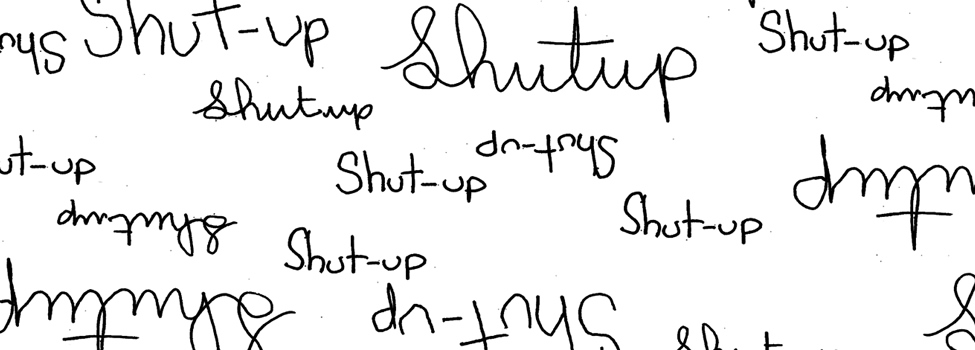 Shut-up
Shutup
Shut-up
Shutup
Shut-up
Shut-up
Shut-up
Shutup
Shut-up
Shut-up